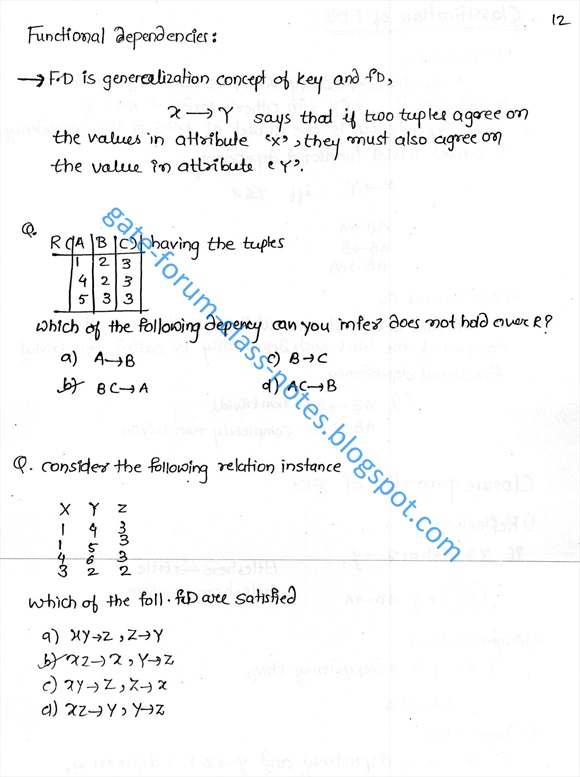 12
Functional dependencies:
→ F.D is generealization concept of key and fD,
X → Y says that if two tuples agree on
the values in attribute 'X', they must also agree on
the value in attribute 'Y'.
Q. R (A B C) having the tuples
1 2 3
4 2 3
5 3 3
which of the following depency can you infer does not hod over R?
a) A→B c) B→C
b) BC→A d) AC→B
Q. consider the following relation instance
X Y Z
1 4 3
1 5 3
4 6 3
3 2 2
which of the foll. f.D are satisfied
a) XY→Z, Z→Y
b) XZ→X, Y→Z
c) XY→Z, Z→X
d) XZ→Y, Y→Z
gate-forum-class-notes.blogspot.com